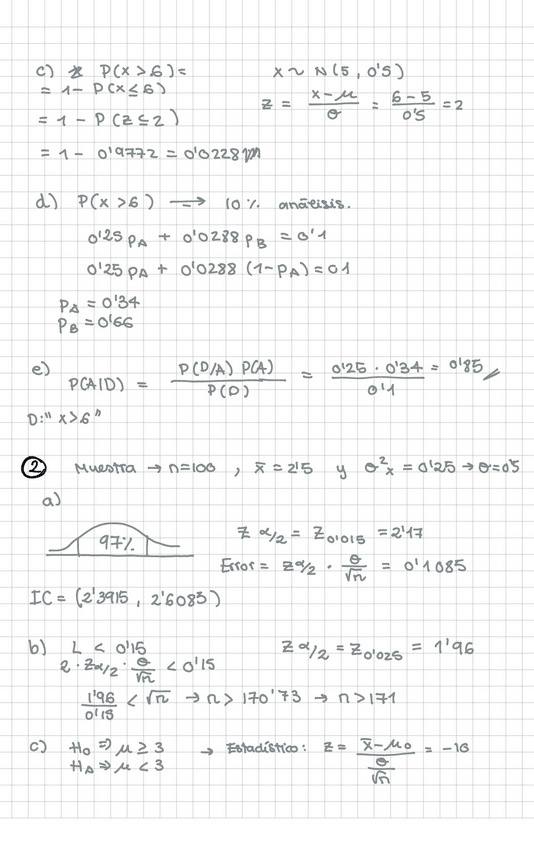 c) P(x>6)= x ~ N(5, 0'5)
= 1 - P(x≤6) z = (x-μ)/σ = (6-5)/0'5 = 2
= 1 - P(z≤2)
= 1 - 0'9772 = 0'0228
d) P(x>6) → 10% análisis.
0'25 pA + 0'0288 pB = 0'1
0'25 pA + 0'0288 (1-pA) = 0 1
PA = 0'34
PB = 0'66
e) P(A|D) = P(D/A) P(A) / P(D) = 0'25 · 0'34 / 0'1 = 0'85
D: "x>6"
② Muestra → n=100, x̄ = 2'5 y σ²x = 0'25 → σ=0'5
a)
97% Z α/2 = Z0'015 = 2'17
Error = Zα/2 · σ/√n = 0'1085
IC = (2'3915, 2'6085)
b) L < 0'15 Z α/2 = Z0'025 = 1'96
2 · Zα/2 · σ/√n < 0'15
1'96/0'15 < √n → n > 170'73 → n > 171
c) H0 ⇒ μ ≥ 3 → Estadístico: z = (x̄-μ0)/(σ/√n) = -10
HA ⇒ μ < 3